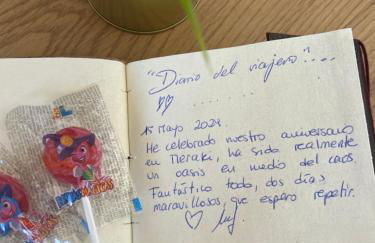 "Diario del viajero"....
15 Mayo 2024
He celebrado nuestro aniversario
en Meraki, ha sido realmente
un oasis en medio del caos.
Fantástico todo, dos días
maravillosos, que espero repetir.